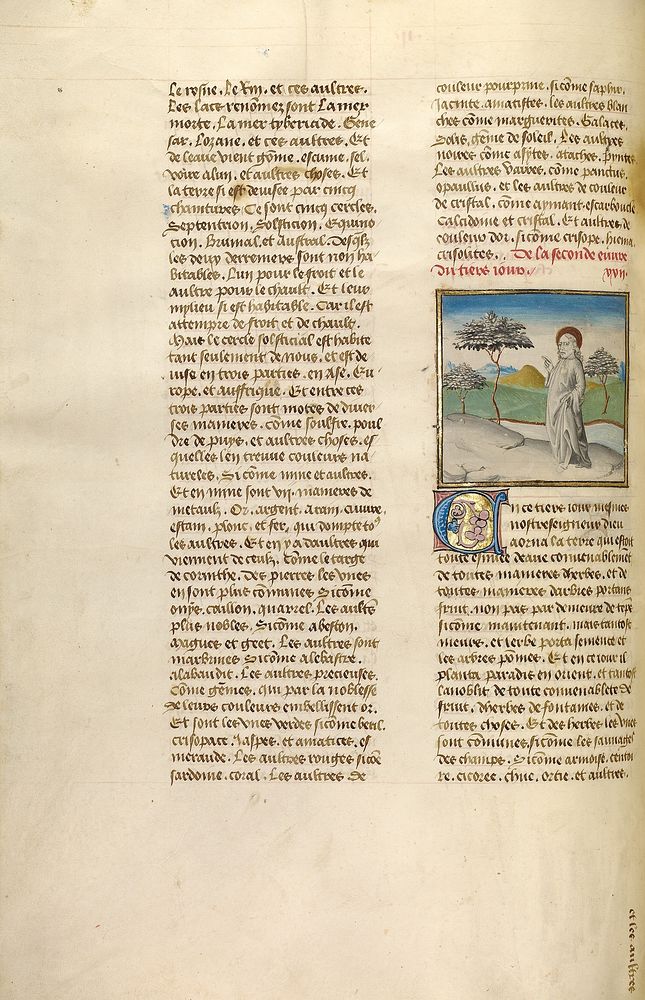 le rosne. Le Rin. et ces aultres.
Les lacs renomez sont La mer
morte. La mer tyberiade. Gene
sar. Lozane. et ces aultres. Et
de leaue vient gōme. escume. sel.
voire alun. et aultres choses. Et
la terre si est deuisee par cincq
chaintures. Ce sont cincq cercles.
Septentrion. Solsticion. Equino
cion. Brumal. et Austral. Desqlz
les deux derreniers sont non ha
bitables. Lun pour le froit et le
aultre pour le chault. Et leur
mylieu si est habitable. Car il est
attempre de froit et de chault.
Mais le cercle solsticial est habite
tant seulement de nous. et est de
uise en trois parties. en Ase. Eu
rope. et auffrique. Et entre ces
trois parties sont motes de diuer
ses manieres. cōme soulfre. poul
dre de puys. et aultres choses. es
quelles len treuue couleurs na
tureles. Si cōme mine et aultres.
Et en mine sont vii. manieres de
metaulx. Or. argent. arain. cuiure.
estain. plonc. et fer. qui dompte to9
les aultres. Et en y a daultres qui
viennent de ceulx. Cōme le targe
de corinthe. Des pierres les vnes
en sont plus cōmunes si cōme
onys. caillon. quarrel. Les aultēs
plus nobles. Si cōme abeston.
magnes et greet. Les aultres sont
marbrines Si cōme alebastre.
alabaudit. Les aultres precieuses.
Cōme gēmes. qui par la noblesse
de leurs couleurs embellissent or.
Et sont les vnes verdes si cōme beril.
crisopace. Jaspes. et amatices. es
meraude. Les aultres rouges si cōe
sardome. coral. Les aultres de
couleur pourprine. si cōme saphir.
Jacinte. amatistes. les aultres blan
ches cōme marguerites. Galaces.
Solis. gēme de soleil. Les aultres
noires cōme asytes. ataches.
Les aultres vaires. cōme panctus.
opaullus. et les aultres de couleur
de cristal. cōme aymant. escarboucle
Calcidonie et cristal. Et aultres de
couleur dor. si cōme crisope. huema.
crisolites. De la seconde euure
du tiers iour. xvii.
En ce tiers iour mesmes
nostreseigneur dieu
aorna la terre qui estoit
toute esmuee deaue conuenablemēt
de toutes manieres dherbes. et de
toutes manieres darbres portans
fruit. non pas par demeure de tēps
si cōme maintenant. mais tantost
meurs. et lerbe porta semence et
les arbres pōmes. Et en ce iour il
planta paradis en orient. et tantost
lanoblit de toute conuenablete de
fruit. dherbes de fontaines. et de
toutes choses. Et des herbes les vnes
sont cōmunes. si cōme les sauuages
des champs. Si cōme armoise. centoi
re. cicoree. chue. ortie. et aultres.
et les aultres